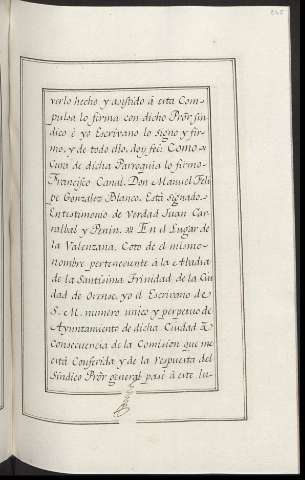 verlo hecho y asistido á esta Com-
pulsa lo firma con dicho Prõr Sín-
dico é yo Escrivano lo signo y fir-
mo, y de todo ello, doy feé. Como
Cura de dicha Parroquia lo firmo.
Francisco Canal. Don Manuel Feli-
pe Gonzalez Blanco. Está signado.
En testimonio de Verdad Juan Car-
vallal y Penin. En el Lugar de
la Valenzana, Coto de el mismo
nombre perteneciente á la Abadia
de la Santísima Trinidad de la Ciu-
dad de Orense, yo el Escrivano de
S. M. numero unico y perpetuo de
Ayuntamiento de dicha Ciudad
Consecuencia de la Comision que me
está Conferida y de la Respuesta del
Síndico Prõr general pasé á este lu-